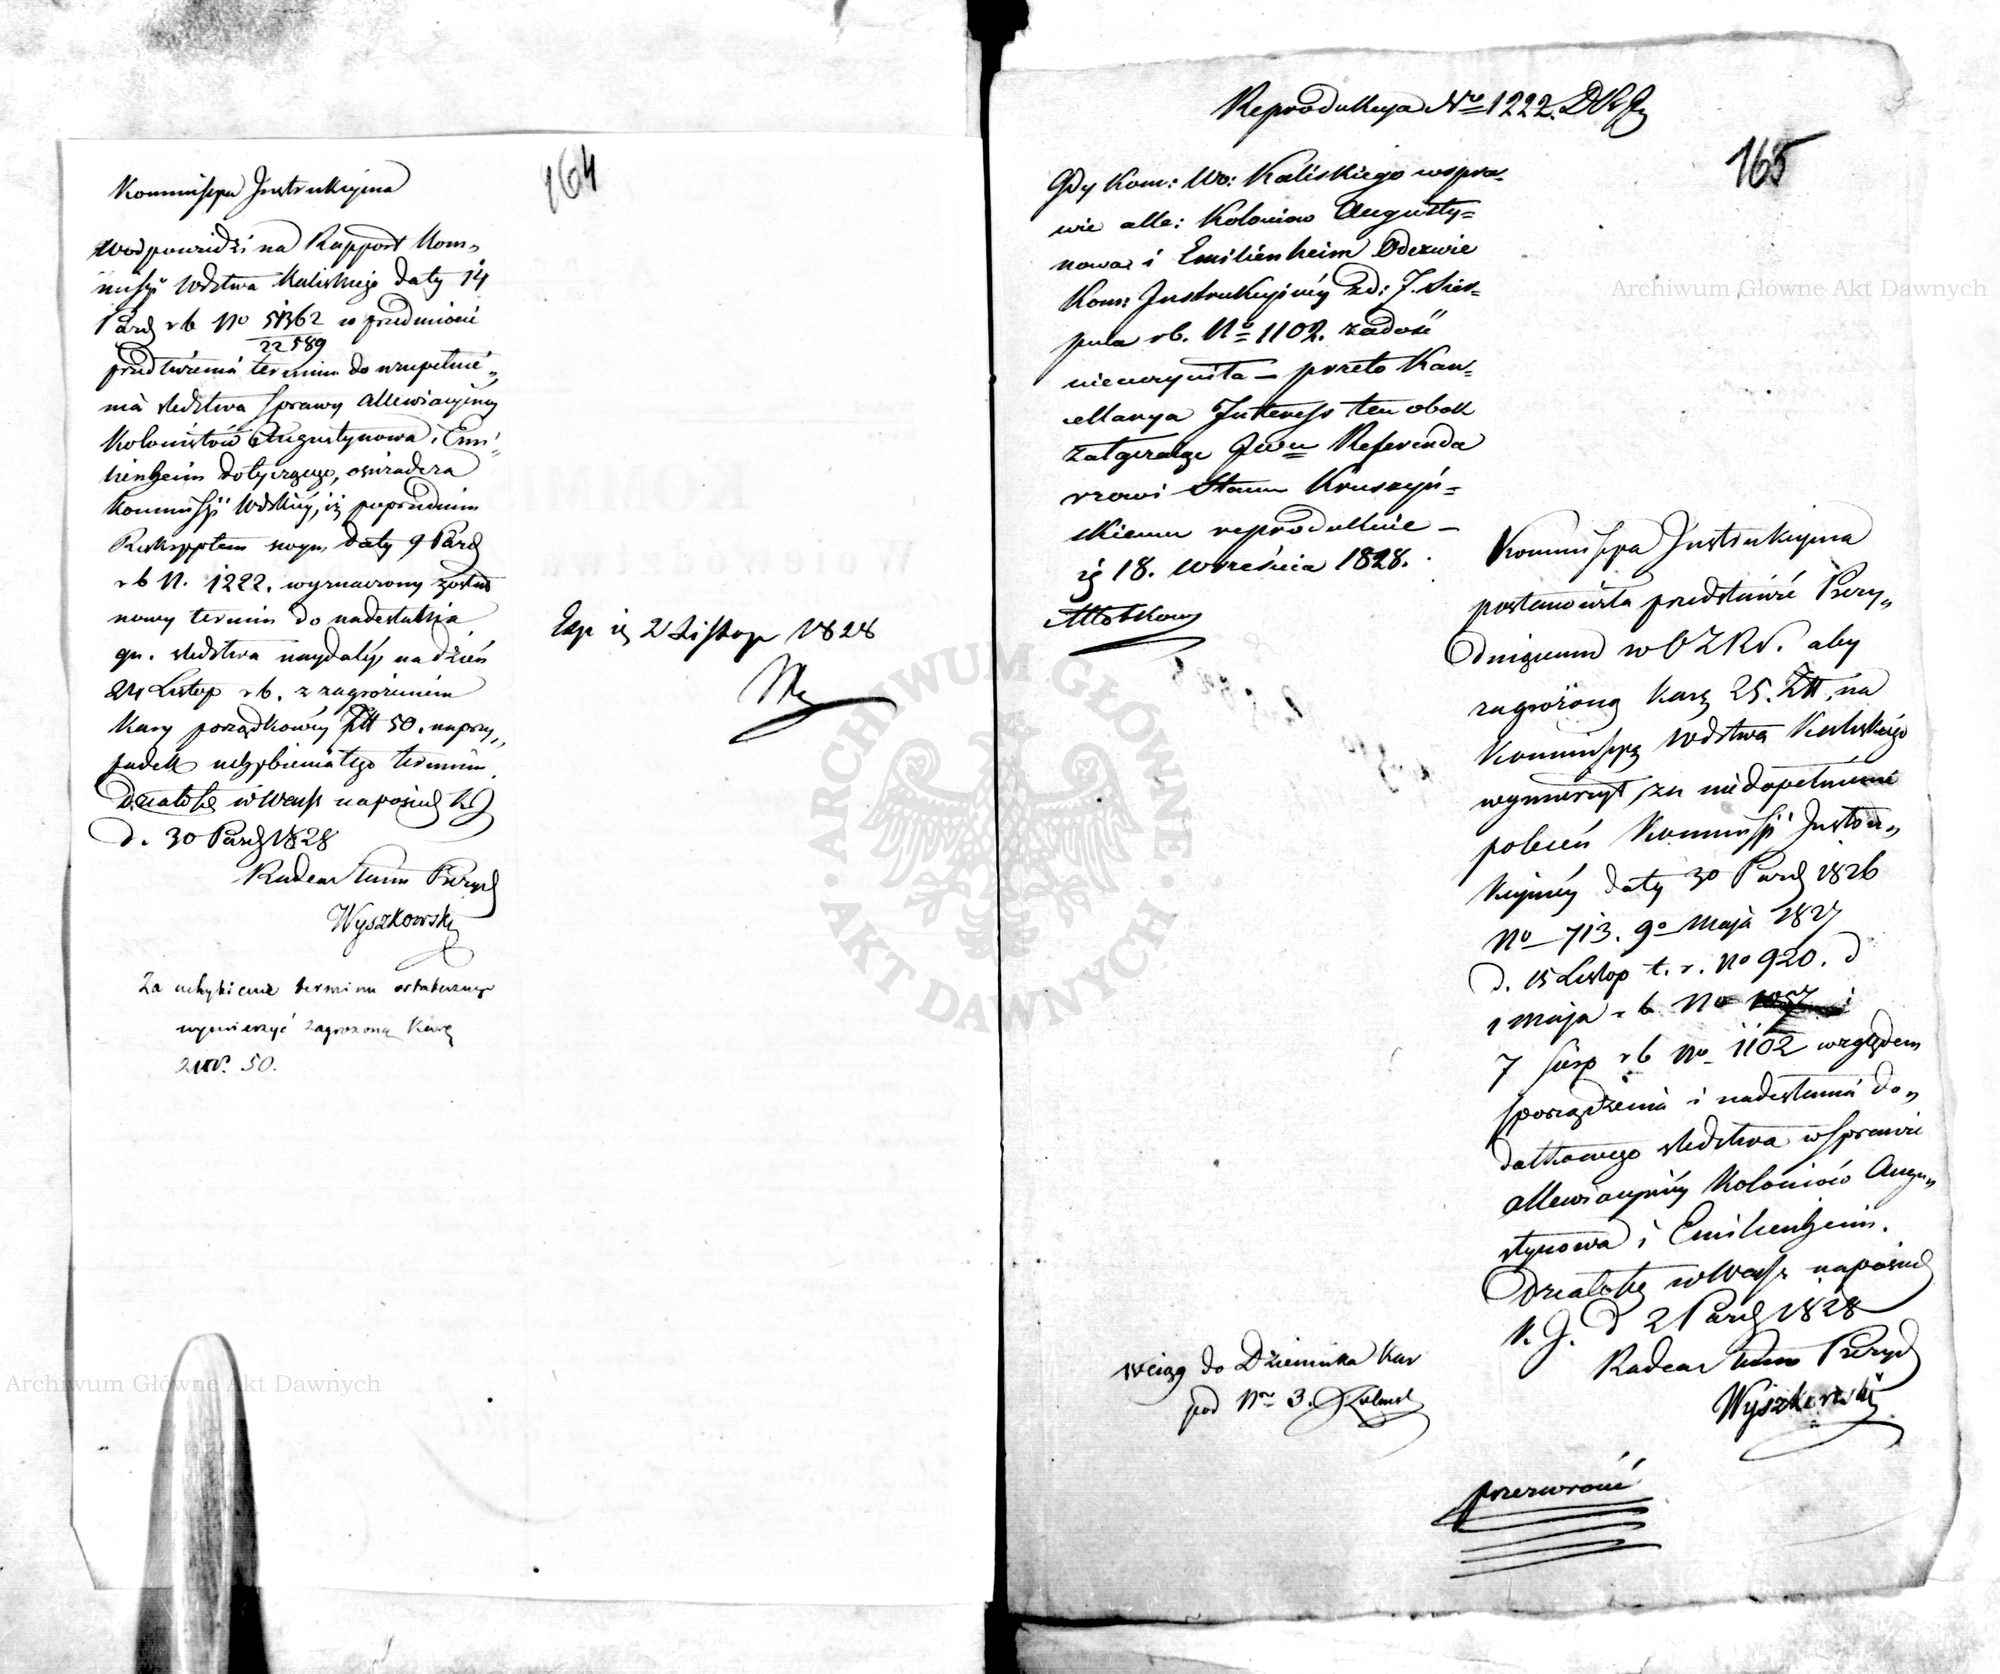 164
Kommissya Instrukcyina
W odpowiedzi na Rapport Kom„
missyi Wdztwa Kaliskiego daty 14
Paźd rb No 51362
22589
w przedmiocie
przedłużenia terminu do uzupełnie„
nia śledztwa sprawy allewiacyiney
Kolonistów Augustynowa i Emi„
lienheim dotyczącego, oświadcza
Kommissyi Wdzkiey, iż poprzednim
Reskryptem swym daty 9 Paźd
rb N. 1222. wyznaczony został
nowy termin do nadesłania
gn. śledztwa naydaléy na dzień
24 Listop rb. z zagrożeniem
Kary porządkowéy Złł 50. na przy„
padek uchybienia tego terminu.
Działo się w Warsz na posied K J
d. 30 Paźd 1828
Radca Stanu Prezyd
Wyszkowski
Exp iż 2 Listop 1828
Za uchybienie terminu ostatecznego
wymierzyć zagrożoną Karę
50.
Reprodukcya No 1222.
165
Gdy Kom: Wo: Kaliskiego w spra=
wie alle: Koloniow Augusty=
nowa i Emilienheim Odezwie
Kom: Instrukcyiney z d: 7. Sier=
pnia rb. No 1102. zadość
nieuczyniła — przeto Kan=
cellarya Interess ten obok
załącza Jwu Referenda
rzowi Stanu Kruszyń=
skiemu reprodukuie —
iż 18. Września 1828.
Kommissya Instrukcyina
postanowiła przedstawić Prezy„
duiącemu w O Z KW. aby
zagrożoną Karę 25. Złł. na
Kommissyą Wdztwa Kaliskiego
wymierzył, za niedopełnienie
poleceń Kommissyi Instru„
kcyinéy daty 30 Paźd 1826
No 713. 9o Maja 1827
d. 15 Listop t. r. No 920. d
1 Maja rb No 1057 i
7 Sierp rb No 1102 względem
sporządzenia i nadesłania do„
datkowego śledztwa w sprawie
allewiacyinéy Koloniów Augu„
stynowa i Emilienheim.
Działo się w Warsz na posied
K. J. d 2 Paźd 1828
Radca Stanu Prezyd
Wyszkowski
wciąg do Dziennika Kar
pod Nr 3.
przewrócić
Archiwum Główne Akt Dawnych
Archiwum Główne Akt Dawnych
ARCHIWUM GŁÓWNE · AKT DAWNYCH ·